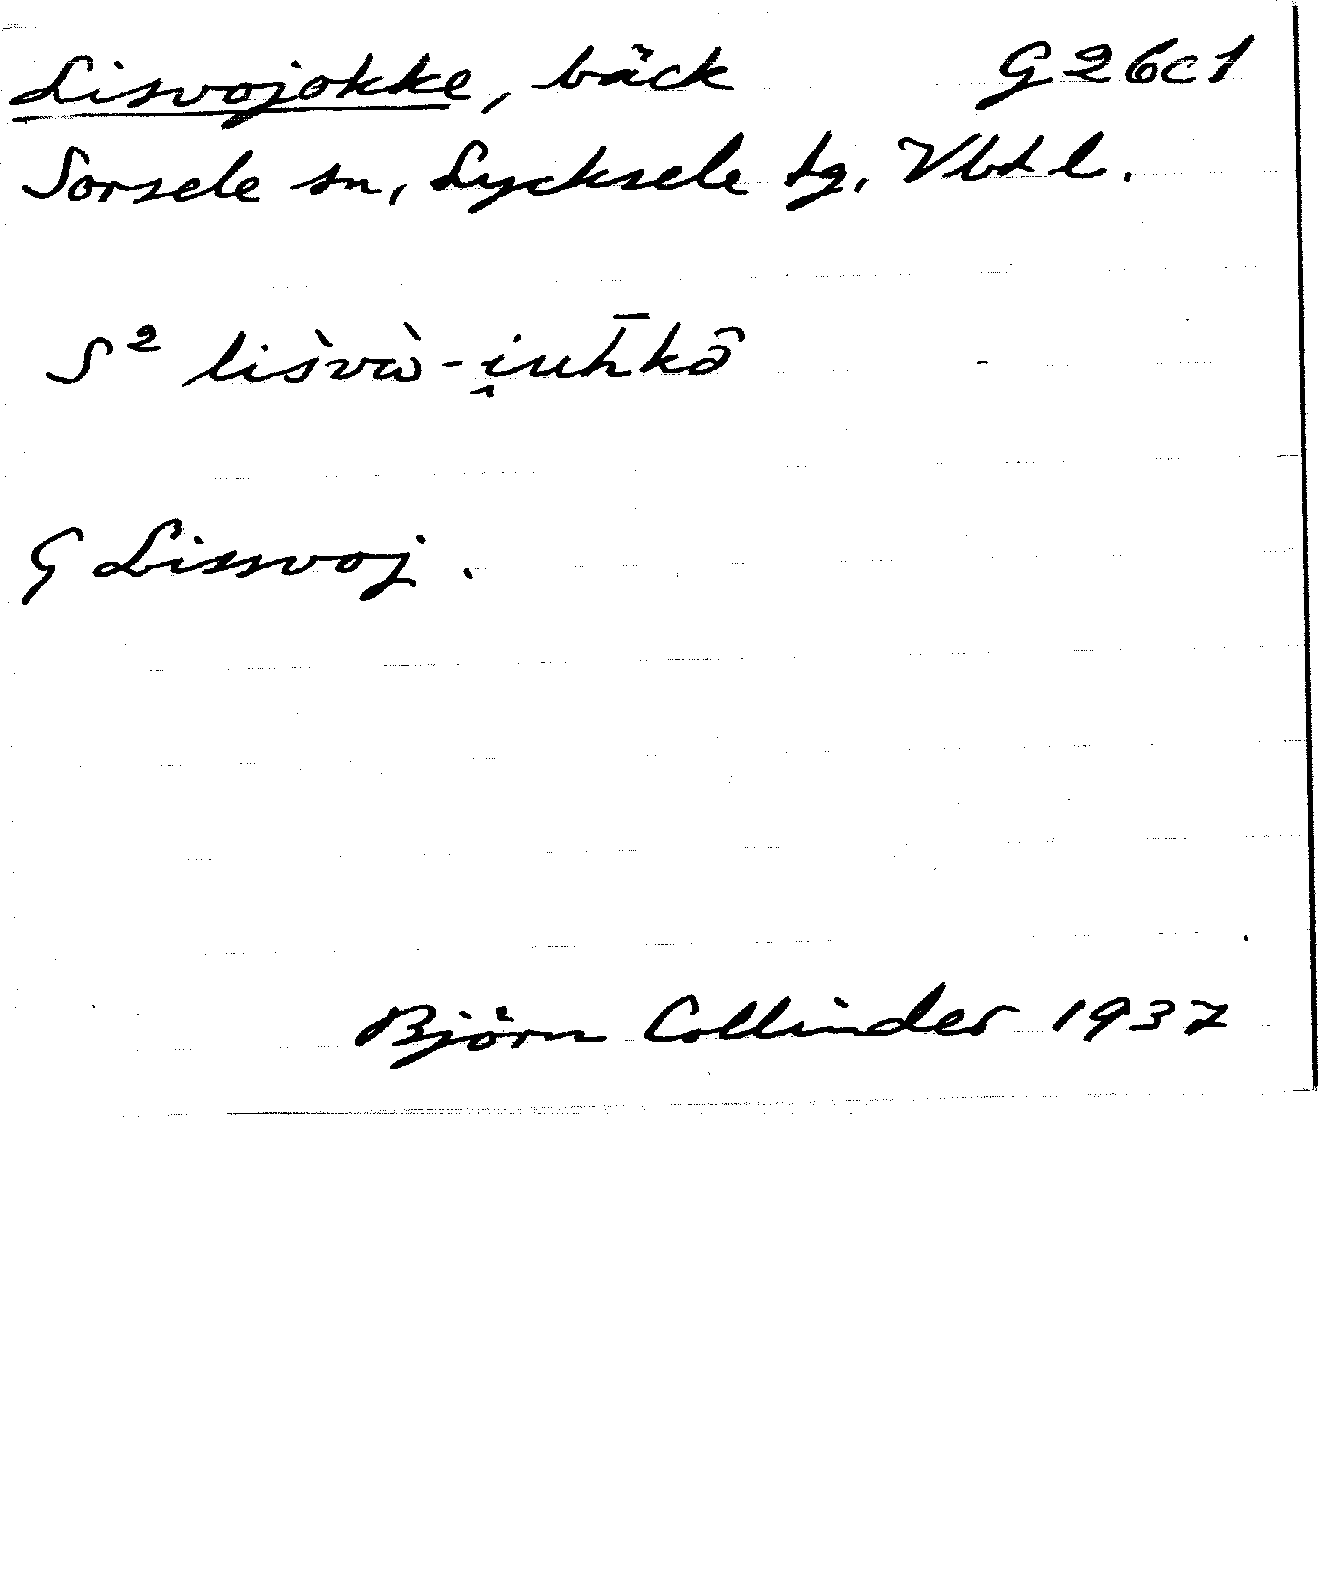 Lisvojokke, bäck G26c1
Sorsele sn, Lycksele tg, Vbtl.
S² lis̀vὼ-i̯uh̄kô
G Lissvoj.
Björn Collinder 1937